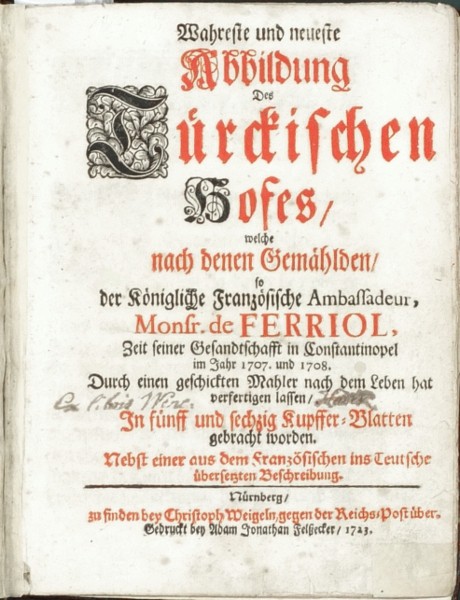 Wahreste und neueste
Abbildung
Des
Türckischen
Hofes/
welche
nach denen Gemählden/
so
der Königliche Französische Ambassadeur,
Monsr. de FERRIOL,
Zeit seiner Gesandtschafft in Constantinopel
im Jahr 1707. und 1708.
Durch einen geschickten Mahler nach dem Leben hat
verfertigen lassen/
Ex libris
In fünff und sechzig Kupffer-Blatten
gebracht worden.
Nebst einer aus dem Französischen ins Teutsche
übersetzten Beschreibung.
Nürnberg/
zu finden bey Christoph Weigeln, gegen der Reichs-Post über.
Gedruckt bey Adam Jonathan Felßecker/ 1723.